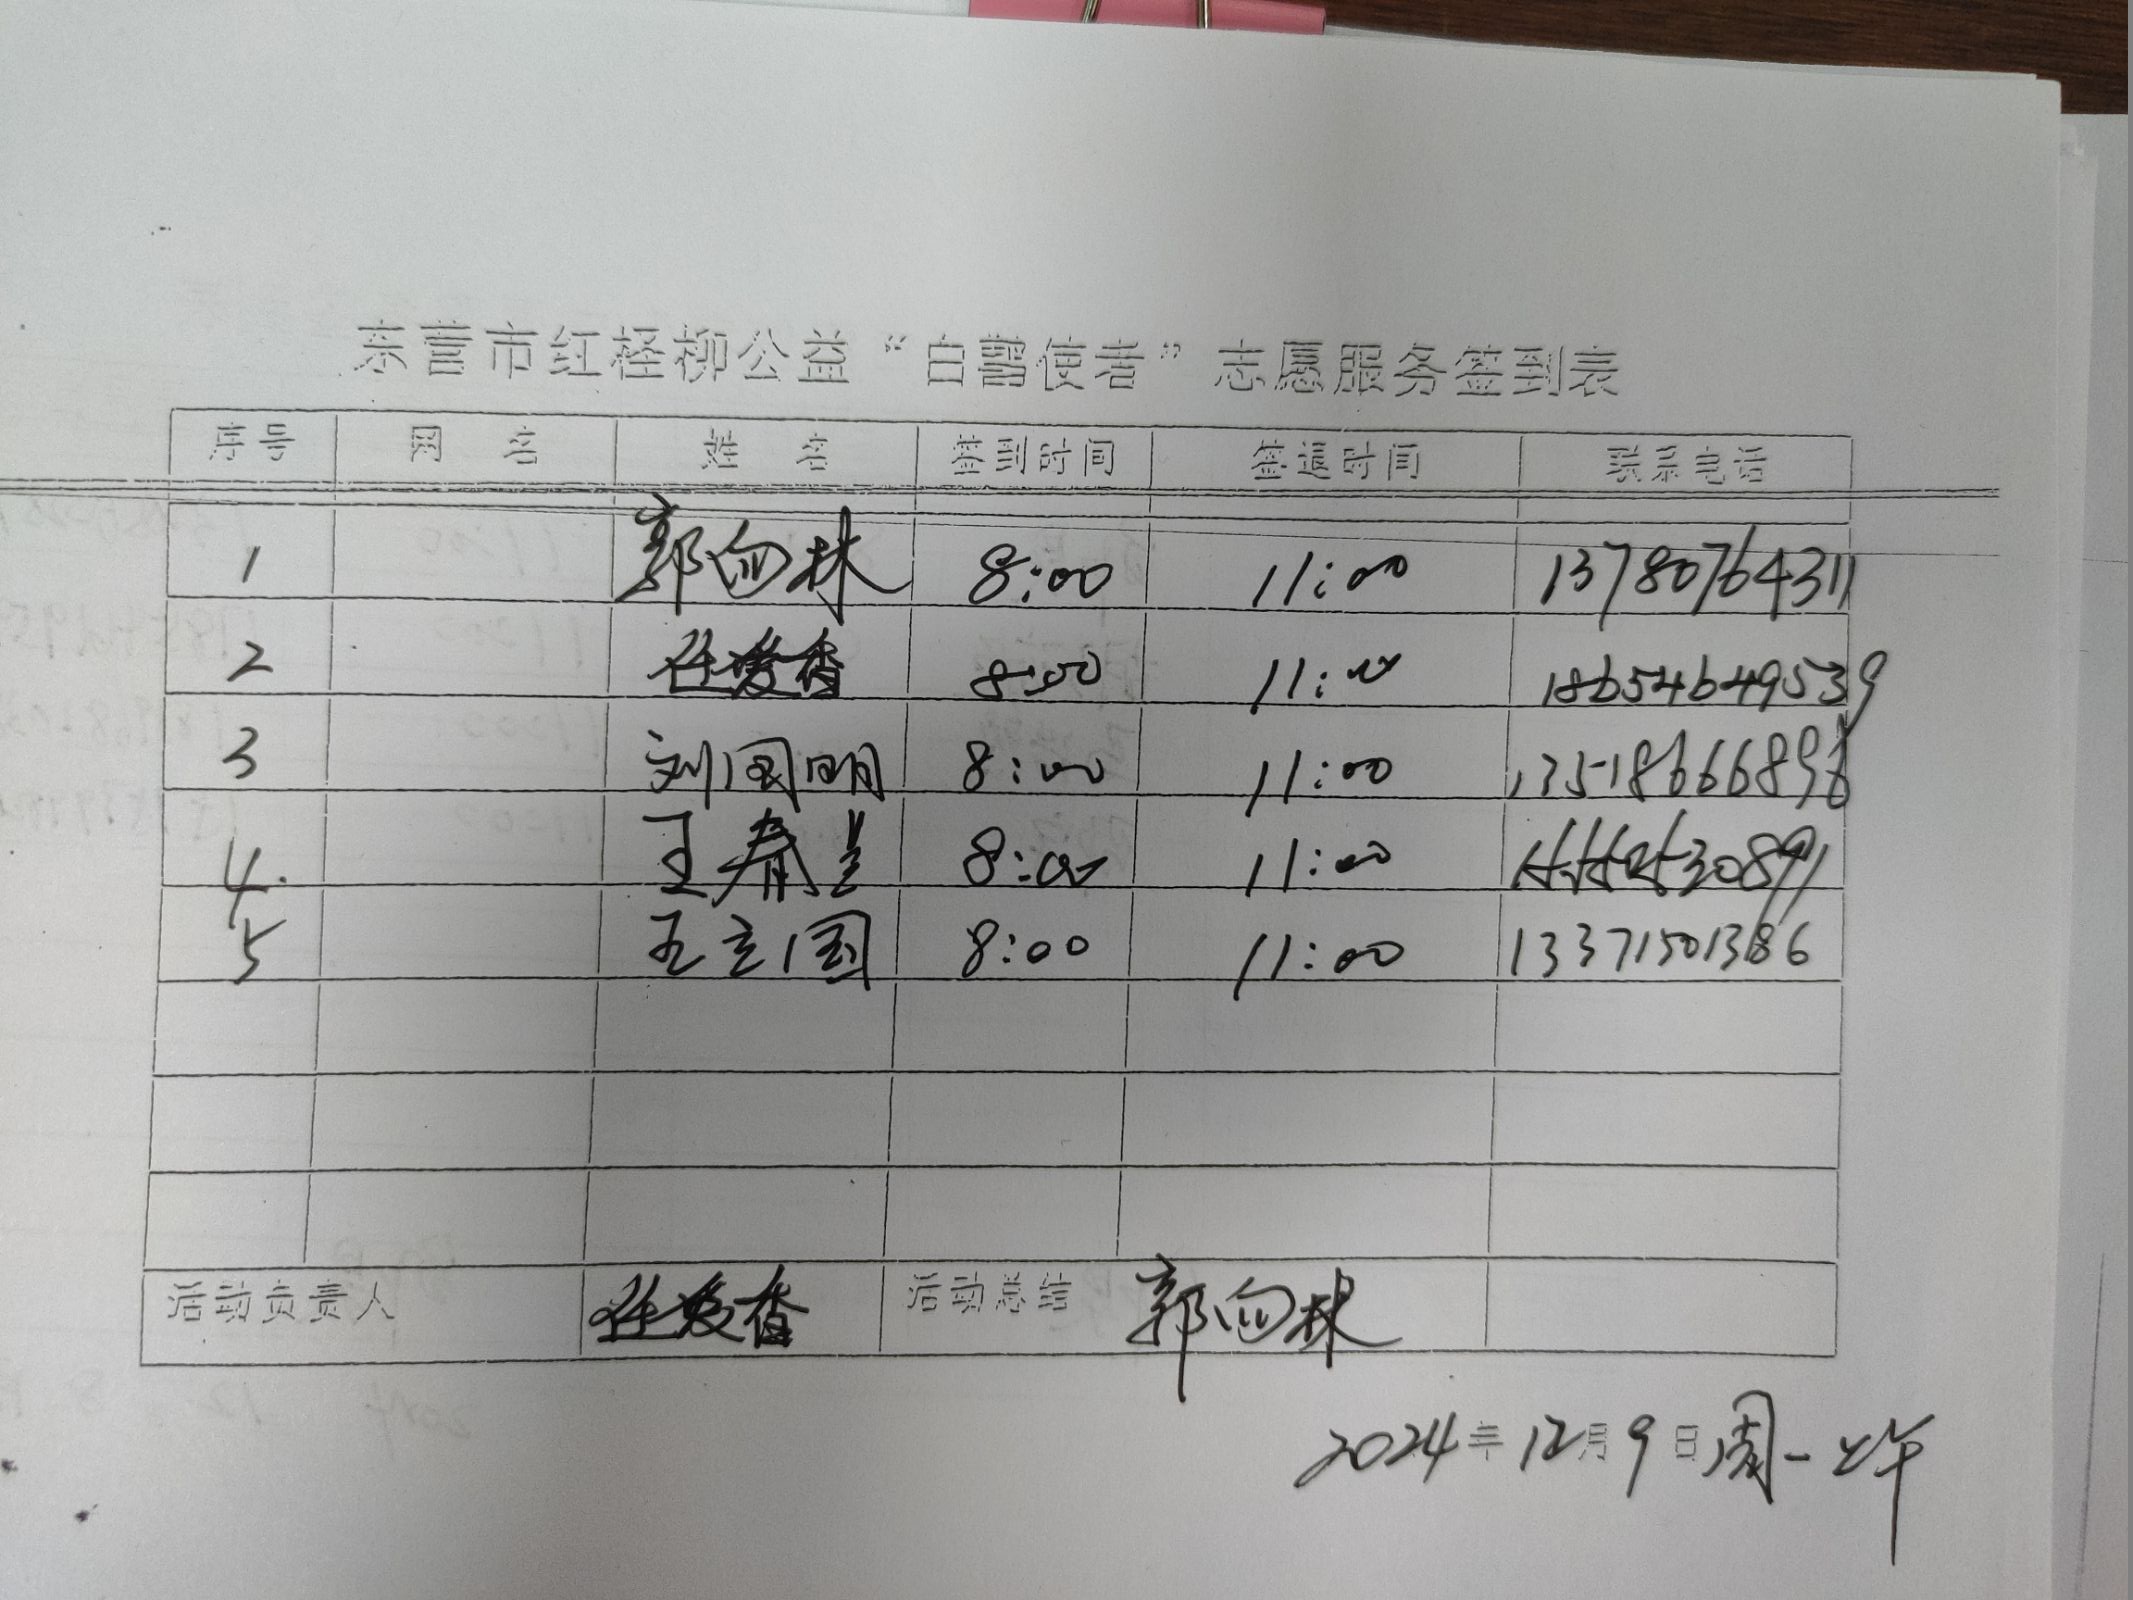 东营市红柽柳公益“白鹭使者”志愿服务签到表
序号 网 名 姓 名 签到时间 签退时间 联系电话
1 郭向林 8:00 11:00 13780764311
2 任爱香 8:00 11:00 18654649539
3 刘国明 8:00 11:00 13518666896
4. 王春兰 8:00 11:00
5 王立国 8:00 11:00 13371501386
活动负责人 任爱香 活动总结 郭向林
2024年12月9日周一上午